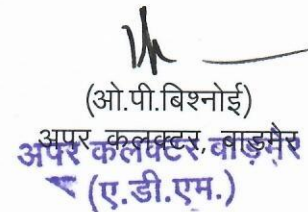 (ओ.पी.बिश्नोई)
अपर कलक्टर, बाड़मेर
अपर कलेक्टर बाड़मेर
(ए.डी.एम.)